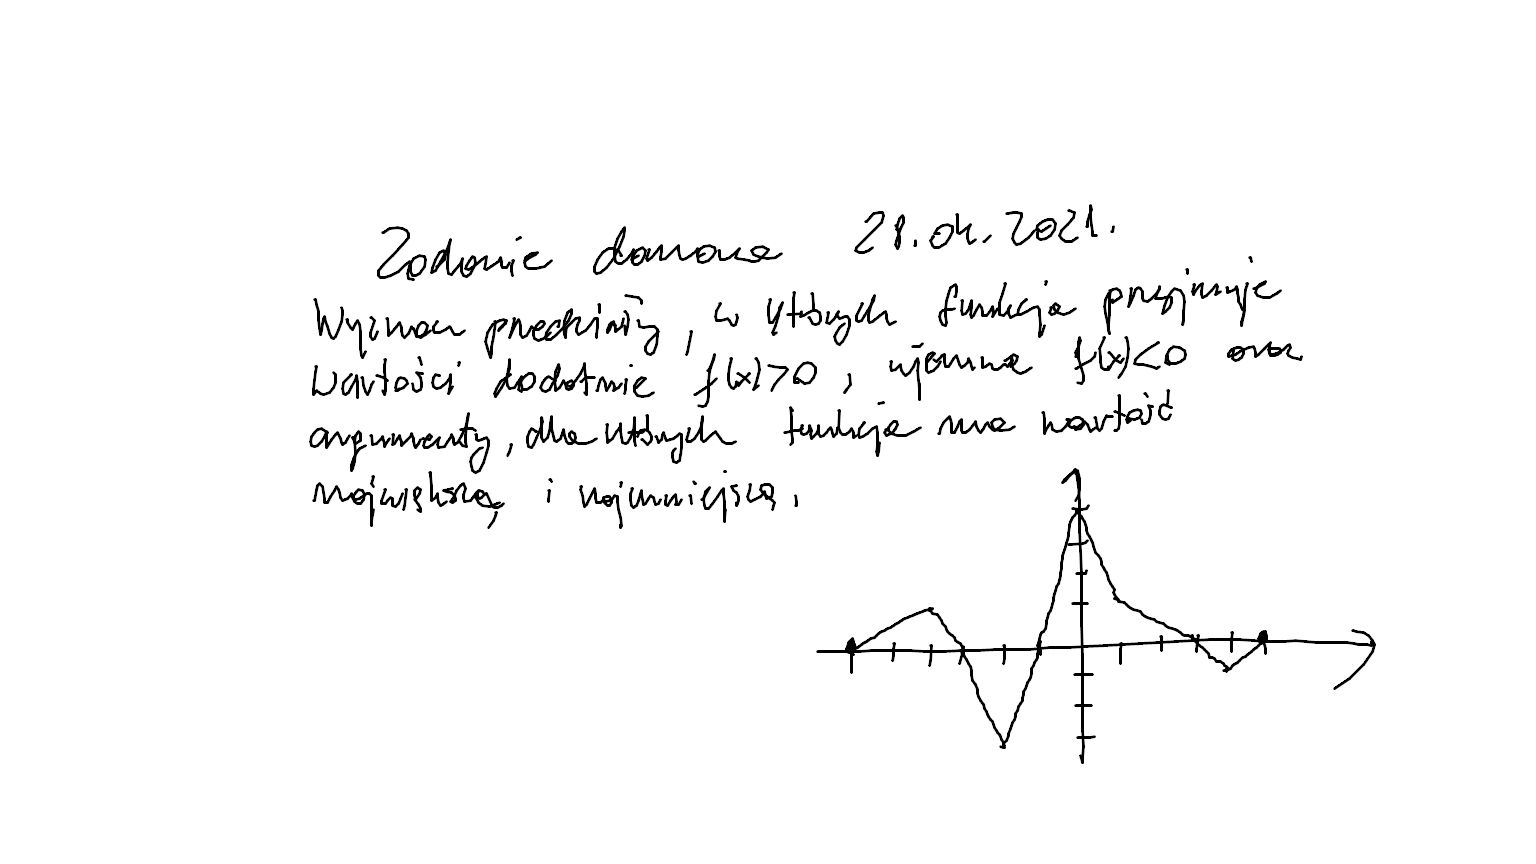 Zadanie domowe 28.04.2021.
Wyznacz przedziały, w których funkcja przyjmuje
wartości dodatnie f(x)>0, ujemne f(x)<0 oraz
argumenty, dla których funkcja ma wartość
największą, i najmniejszą.